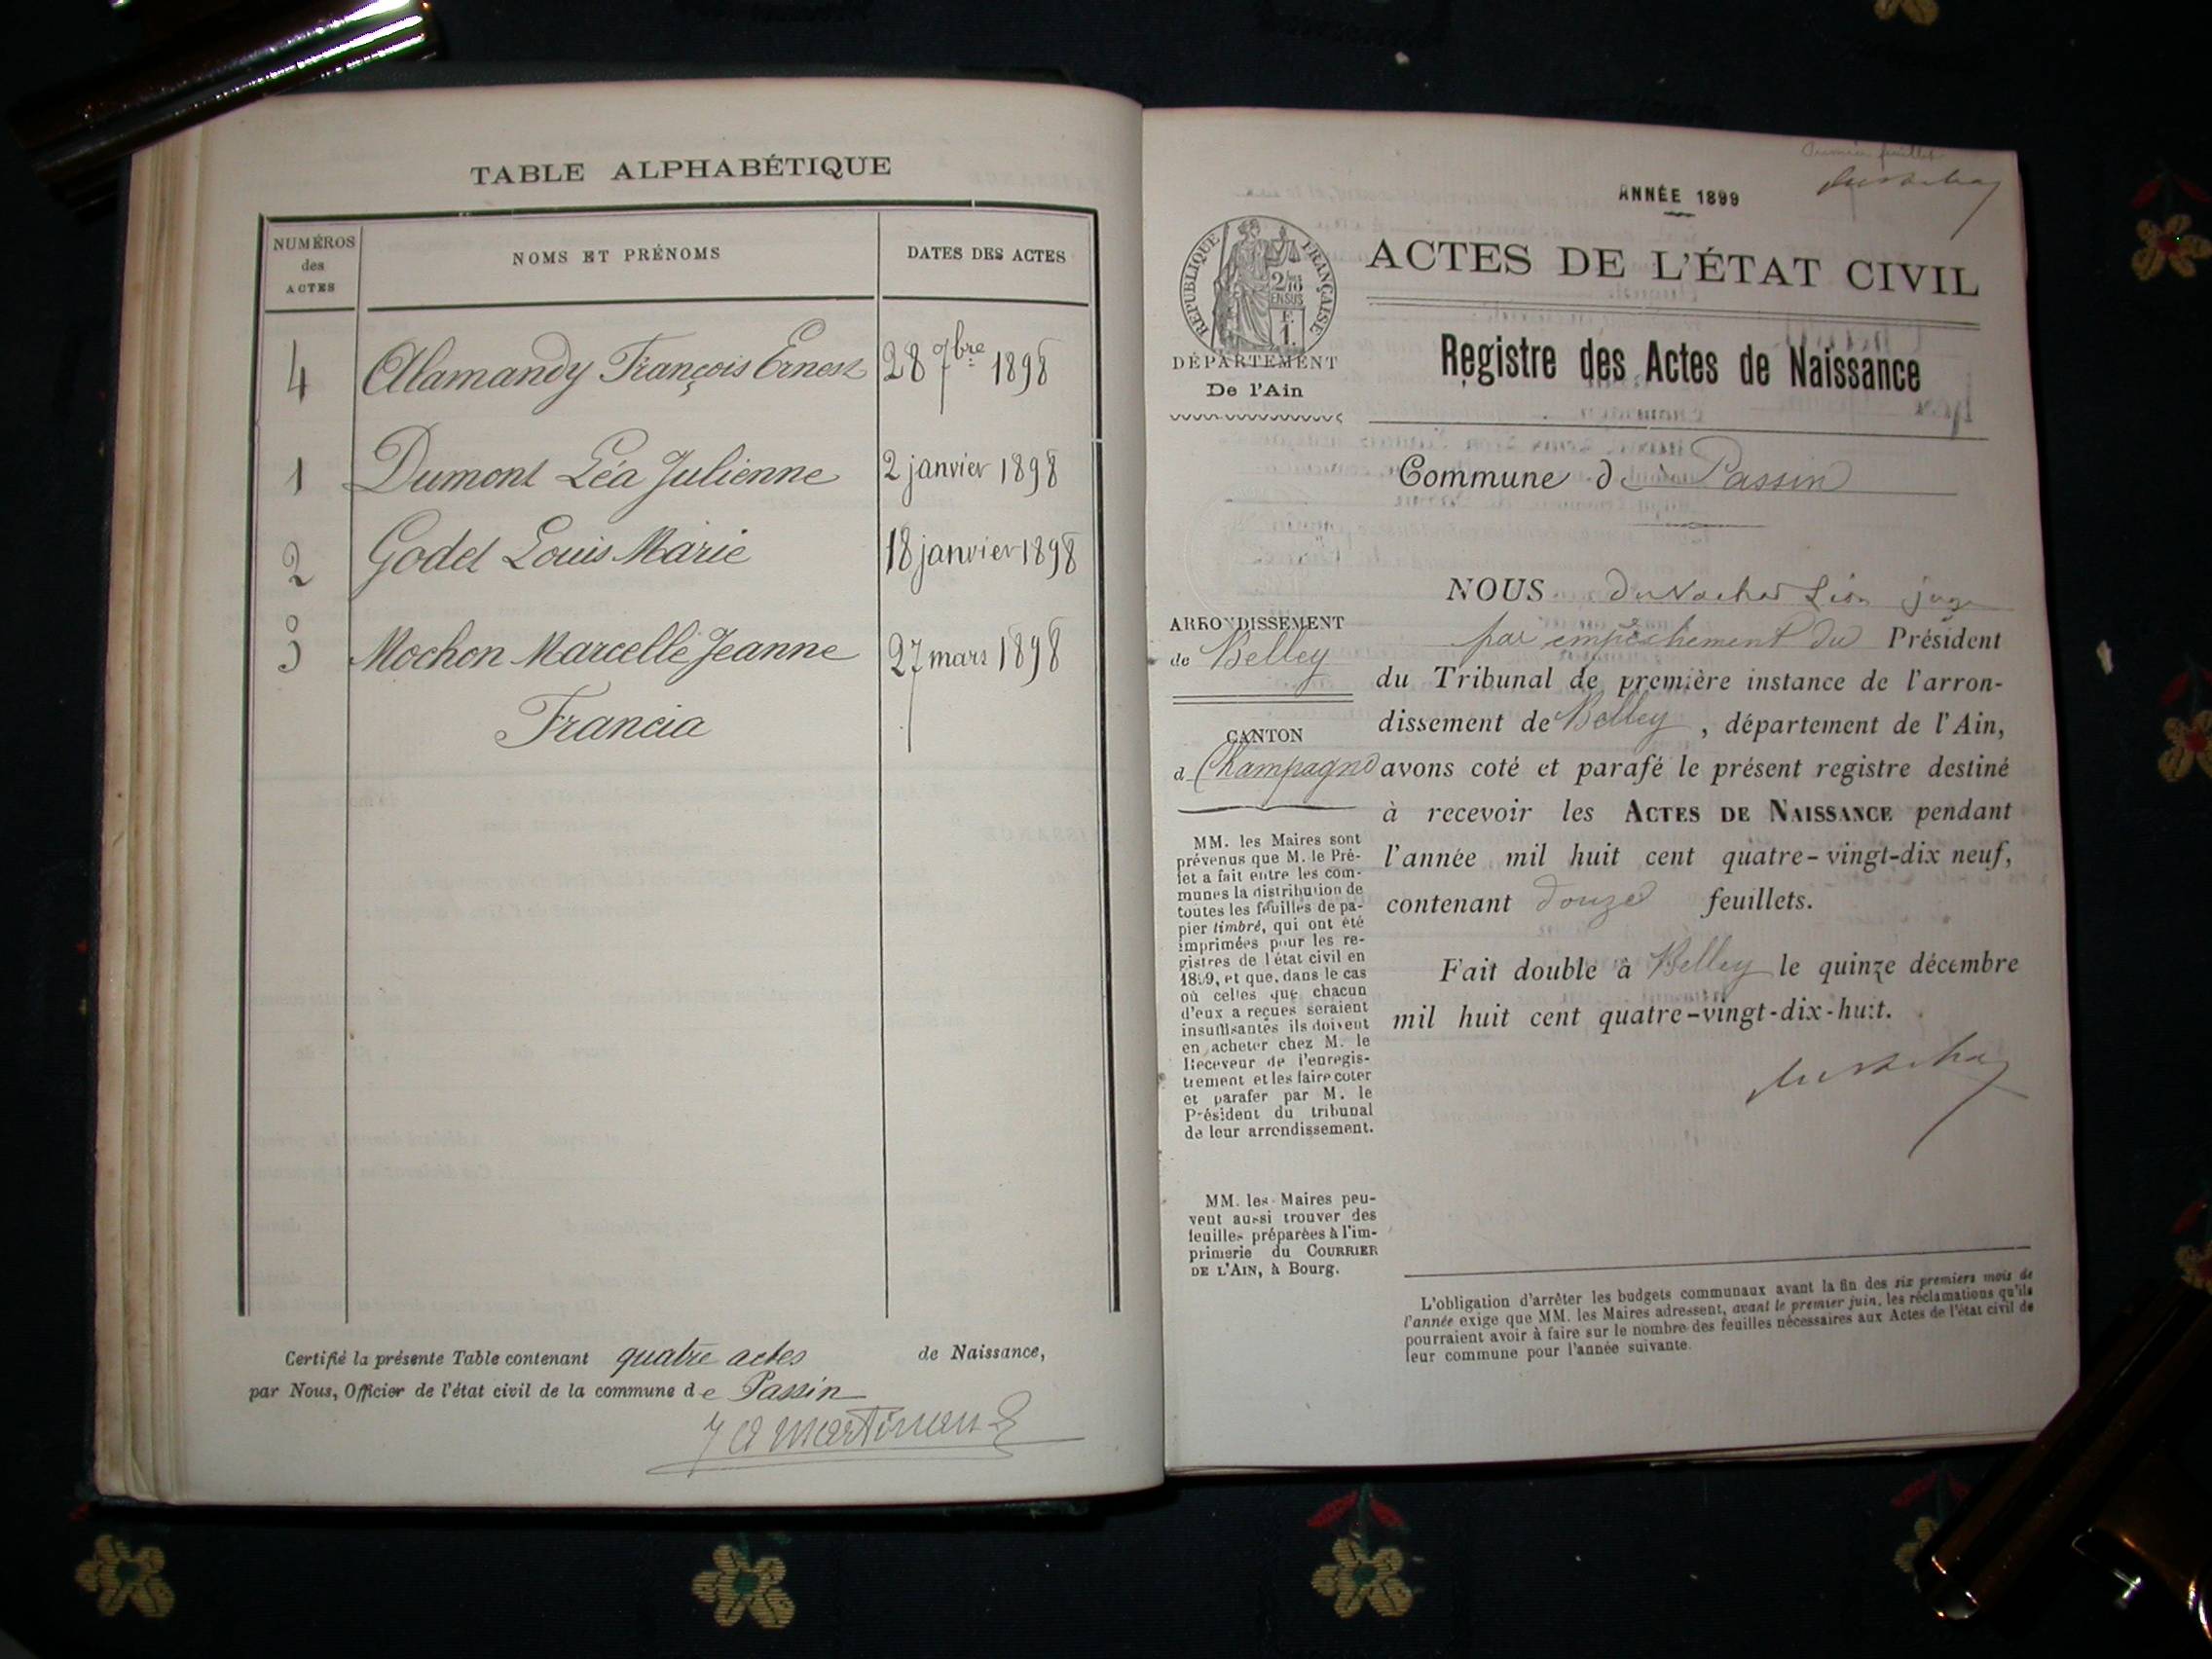 TABLE ALPHABÉTIQUE
NUMÉROS des ACTES
NOMS ET PRÉNOMS
DATES DES ACTES
4 Alamandy François Ernest 28 7bre 1898
1 Dumont Léa Julienne 2 janvier 1898
2 Godet Louis Marie 18 janvier 1898
3 Mochon Marcelle Jeanne 27 mars 1898
Francia
Certifié la présente Table contenant quatre actes de Naissance,
par Nous, Officier de l'état civil de la commune de Passin
Premier feuillet
ANNÉE 1899
RÉPUBLIQUE FRANÇAISE
2/10
EN SUS
F.
1.
DÉPARTEMENT
De l'Ain
ACTES DE L'ÉTAT CIVIL
Registre des Actes de Naissance
Commune de Passin
ARRONDISSEMENT
de Belley
CANTON
d Champagne
MM. les Maires sont
prévenus que M. le Pré-
fet a fait entre les com-
munes la distribution de
toutes les feuilles de pa-
pier timbré, qui ont été
imprimées pour les re-
gistres de l'état civil en
1899, et que, dans le cas
où celles que chacun
d'eux a reçues seraient
insuffisantes ils doivent
en acheter chez M. le
Receveur de l'enregis-
trement et les faire coter
et parafer par M. le
Président du tribunal
de leur arrondissement.
MM. les Maires peu-
vent aussi trouver des
feuilles préparées à l'im-
primerie du COURRIER
DE L'AIN, à Bourg.
NOUS Léon juge
par empêchement du Président
du Tribunal de première instance de l'arron-
dissement de Belley, département de l'Ain,
avons coté et parafé le présent registre destiné
à recevoir les ACTES DE NAISSANCE pendant
l'année mil huit cent quatre-vingt-dix neuf,
contenant douze feuillets.
Fait double à Belley le quinze décembre
mil huit cent quatre-vingt-dix-huit.
L'obligation d'arrêter les budgets communaux avant la fin des six premiers mois de
l'année exige que MM. les Maires adressent, avant le premier juin, les réclamations qu'ils
pourraient avoir à faire sur le nombre des feuilles nécessaires aux Actes de l'état civil de
leur commune pour l'année suivante.